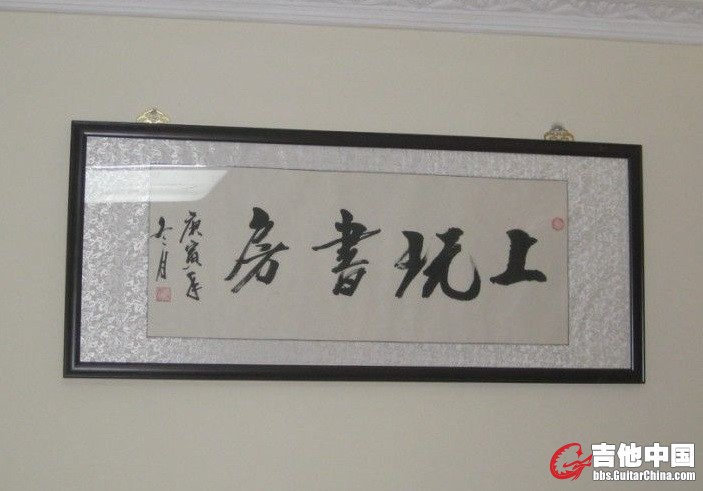 上玩書房
庚寅年
冬月
吉他中国
bbs.GuitarChina.com